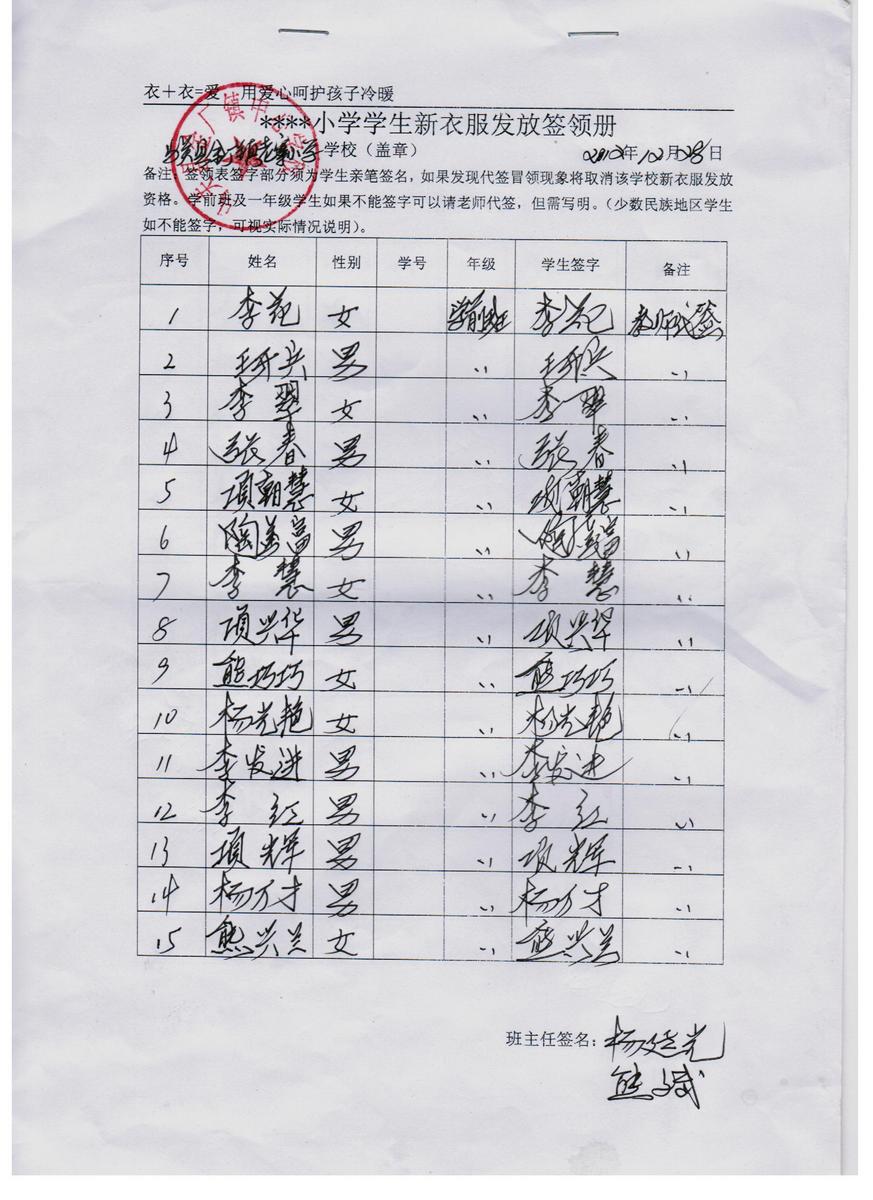 衣＋衣=爱 用爱心呵护孩子冷暖
****小学学生新衣服发放签领册
学校（盖章） 2012年12月28日
备注：签领表签字部分须为学生亲笔签名，如果发现代签冒领现象将取消该学校新衣服发放
资格。学前班及一年级学生如果不能签字可以请老师代签，但需写明。（少数民族地区学生
如不能签字，可视实际情况说明）。
序号 姓名 性别 学号 年级 学生签字 备注
1 李苑 女 学前班 李苑 教师代签
2 王开兵 男 〃 王开兵 〃
3 李翠 女 〃 李翠 〃
4 张春 男 〃 张春 〃
5 项朝慧 女 〃 项朝慧 〃
6 陶 富 男 〃 陶 富 〃
7 李慧 女 〃 李慧 〃
8 项兴华 男 〃 项兴华 〃
9 熊巧巧 女 〃 熊巧巧 〃
10 杨光艳 女 〃 杨光艳 〃
11 李发进 男 〃 李发进 〃
12 李红 男 〃 李红 〃
13 项辉 男 〃 项辉 〃
14 杨万才 男 〃 杨万才 〃
15 熊兴兰 女 〃 熊兴兰 〃
班主任签名：杨廷光
熊斌